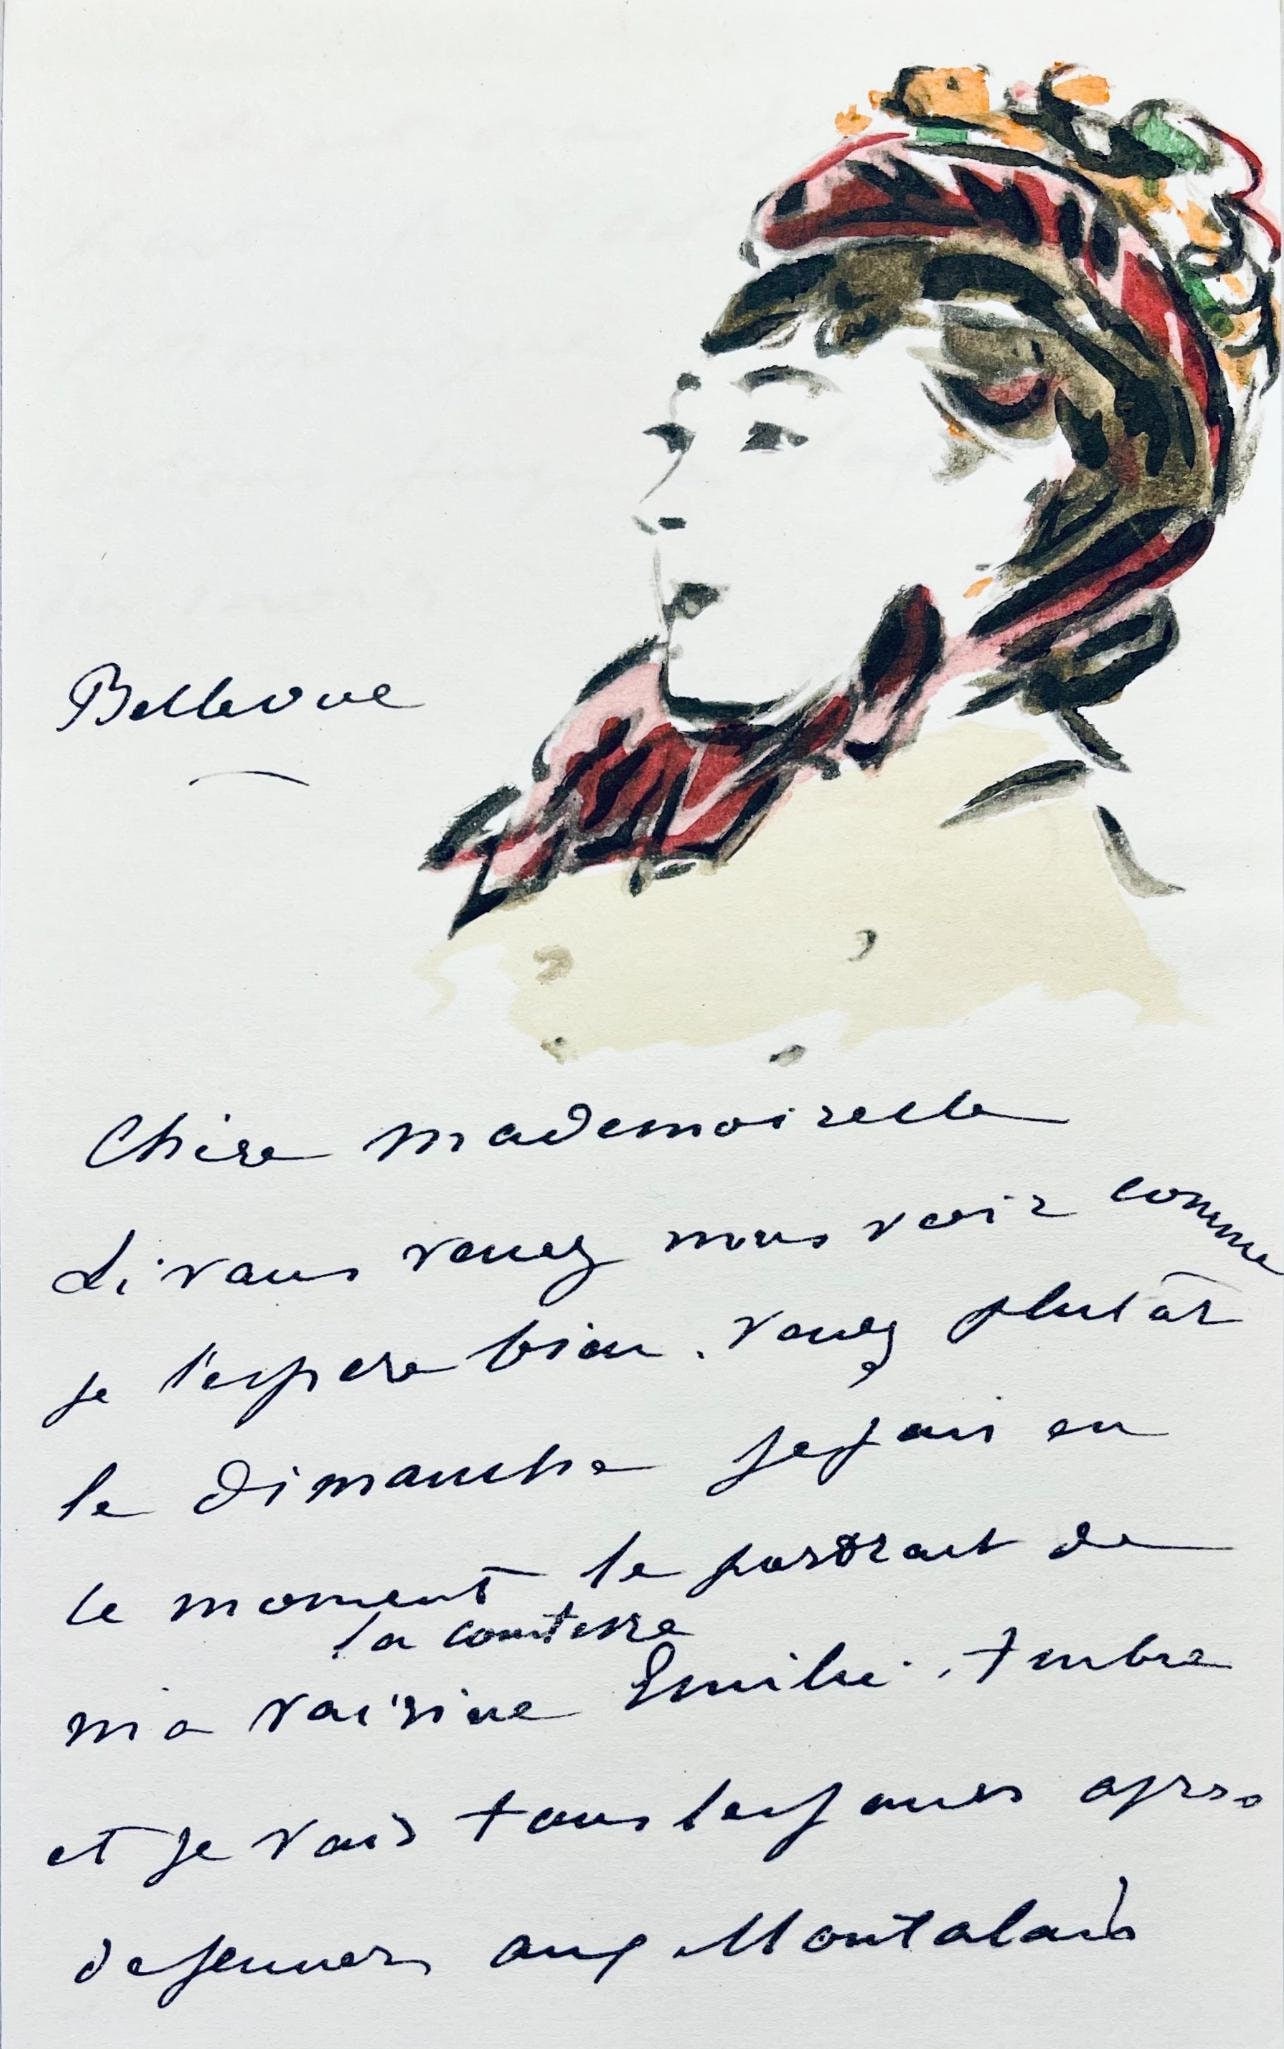 Bellevue
Chère mademoiselle
Si vous venez nous voir comme
je l'espere bien. venez plutôt
le dimanche je fais en
ce moment le portrait de
la comtesse
ma voisine Emilie. Ambre
et je vais tous les jours apres
dejeuner aux Montalais